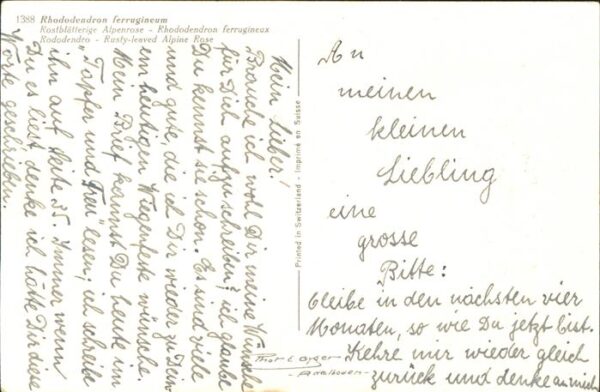 1388 Rhododendron ferrugineum
Rostblätterige Alpenrose - Rhododendron ferrugineux
Rododendro - Rusty-leaved Alpine Rose
Mein Lieber!
Brauche ich wohl Dir meine Wünsche
für Dich aufzuschreiben? ich glaube
Du kennst sie schon. Es sind viele
und gute, die ich Dir wieder zu Dei-
em heutigen Wiegenfeste wünsche
Mein Brief kannst Du heute im
"Tapfer und Treu" lesen, ich schreibe
ihn auf Seite 35. Immer wenn
Du es liest denke ich hätte Dir diese
Worte geschrieben.
Printed in Switzerland - Imprimé en Suisse
Adelboden
An
meinen
kleinen
Liebling
eine
grosse
Bitte:
bleibe in den nächsten vier
Monaten, so wie Du jetzt bist.
Kehre mir wieder gleich
zurück und denke an mich